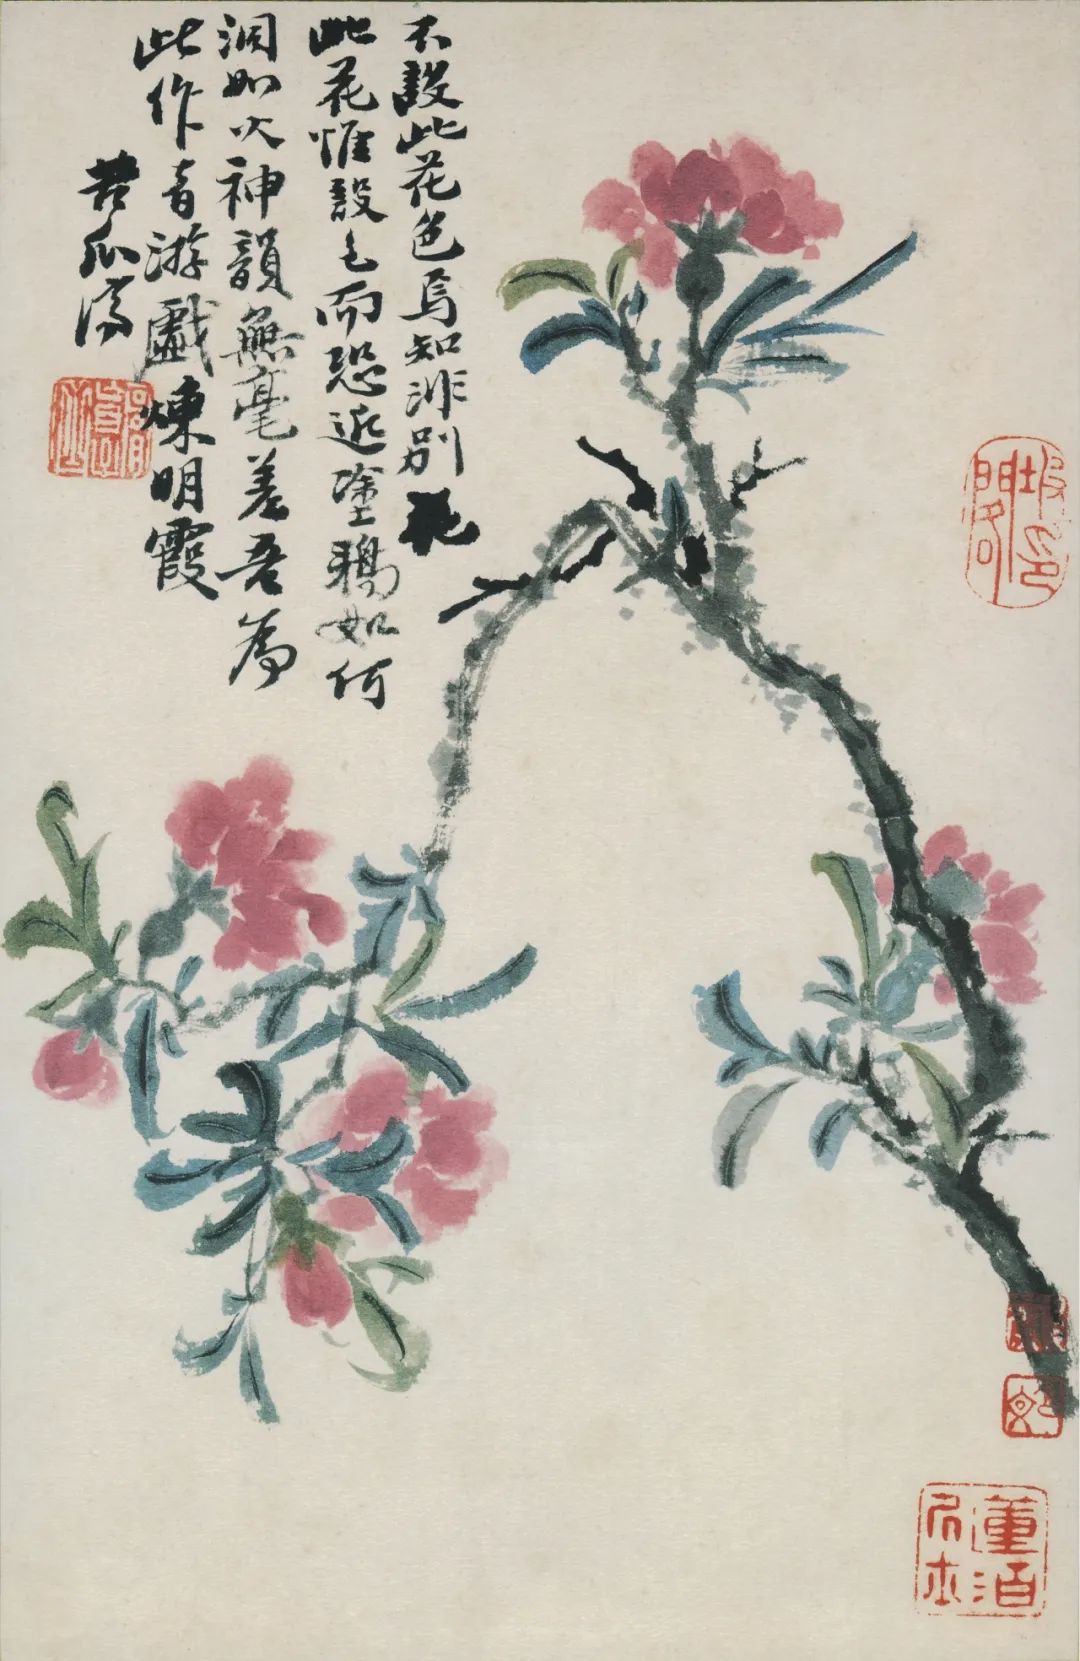 不設此花色焉知非別花
此花惟設色而恐近塗鴉如何
洞如火神韻無毫差吾為
此作游戲煉明霞
苦瓜濟